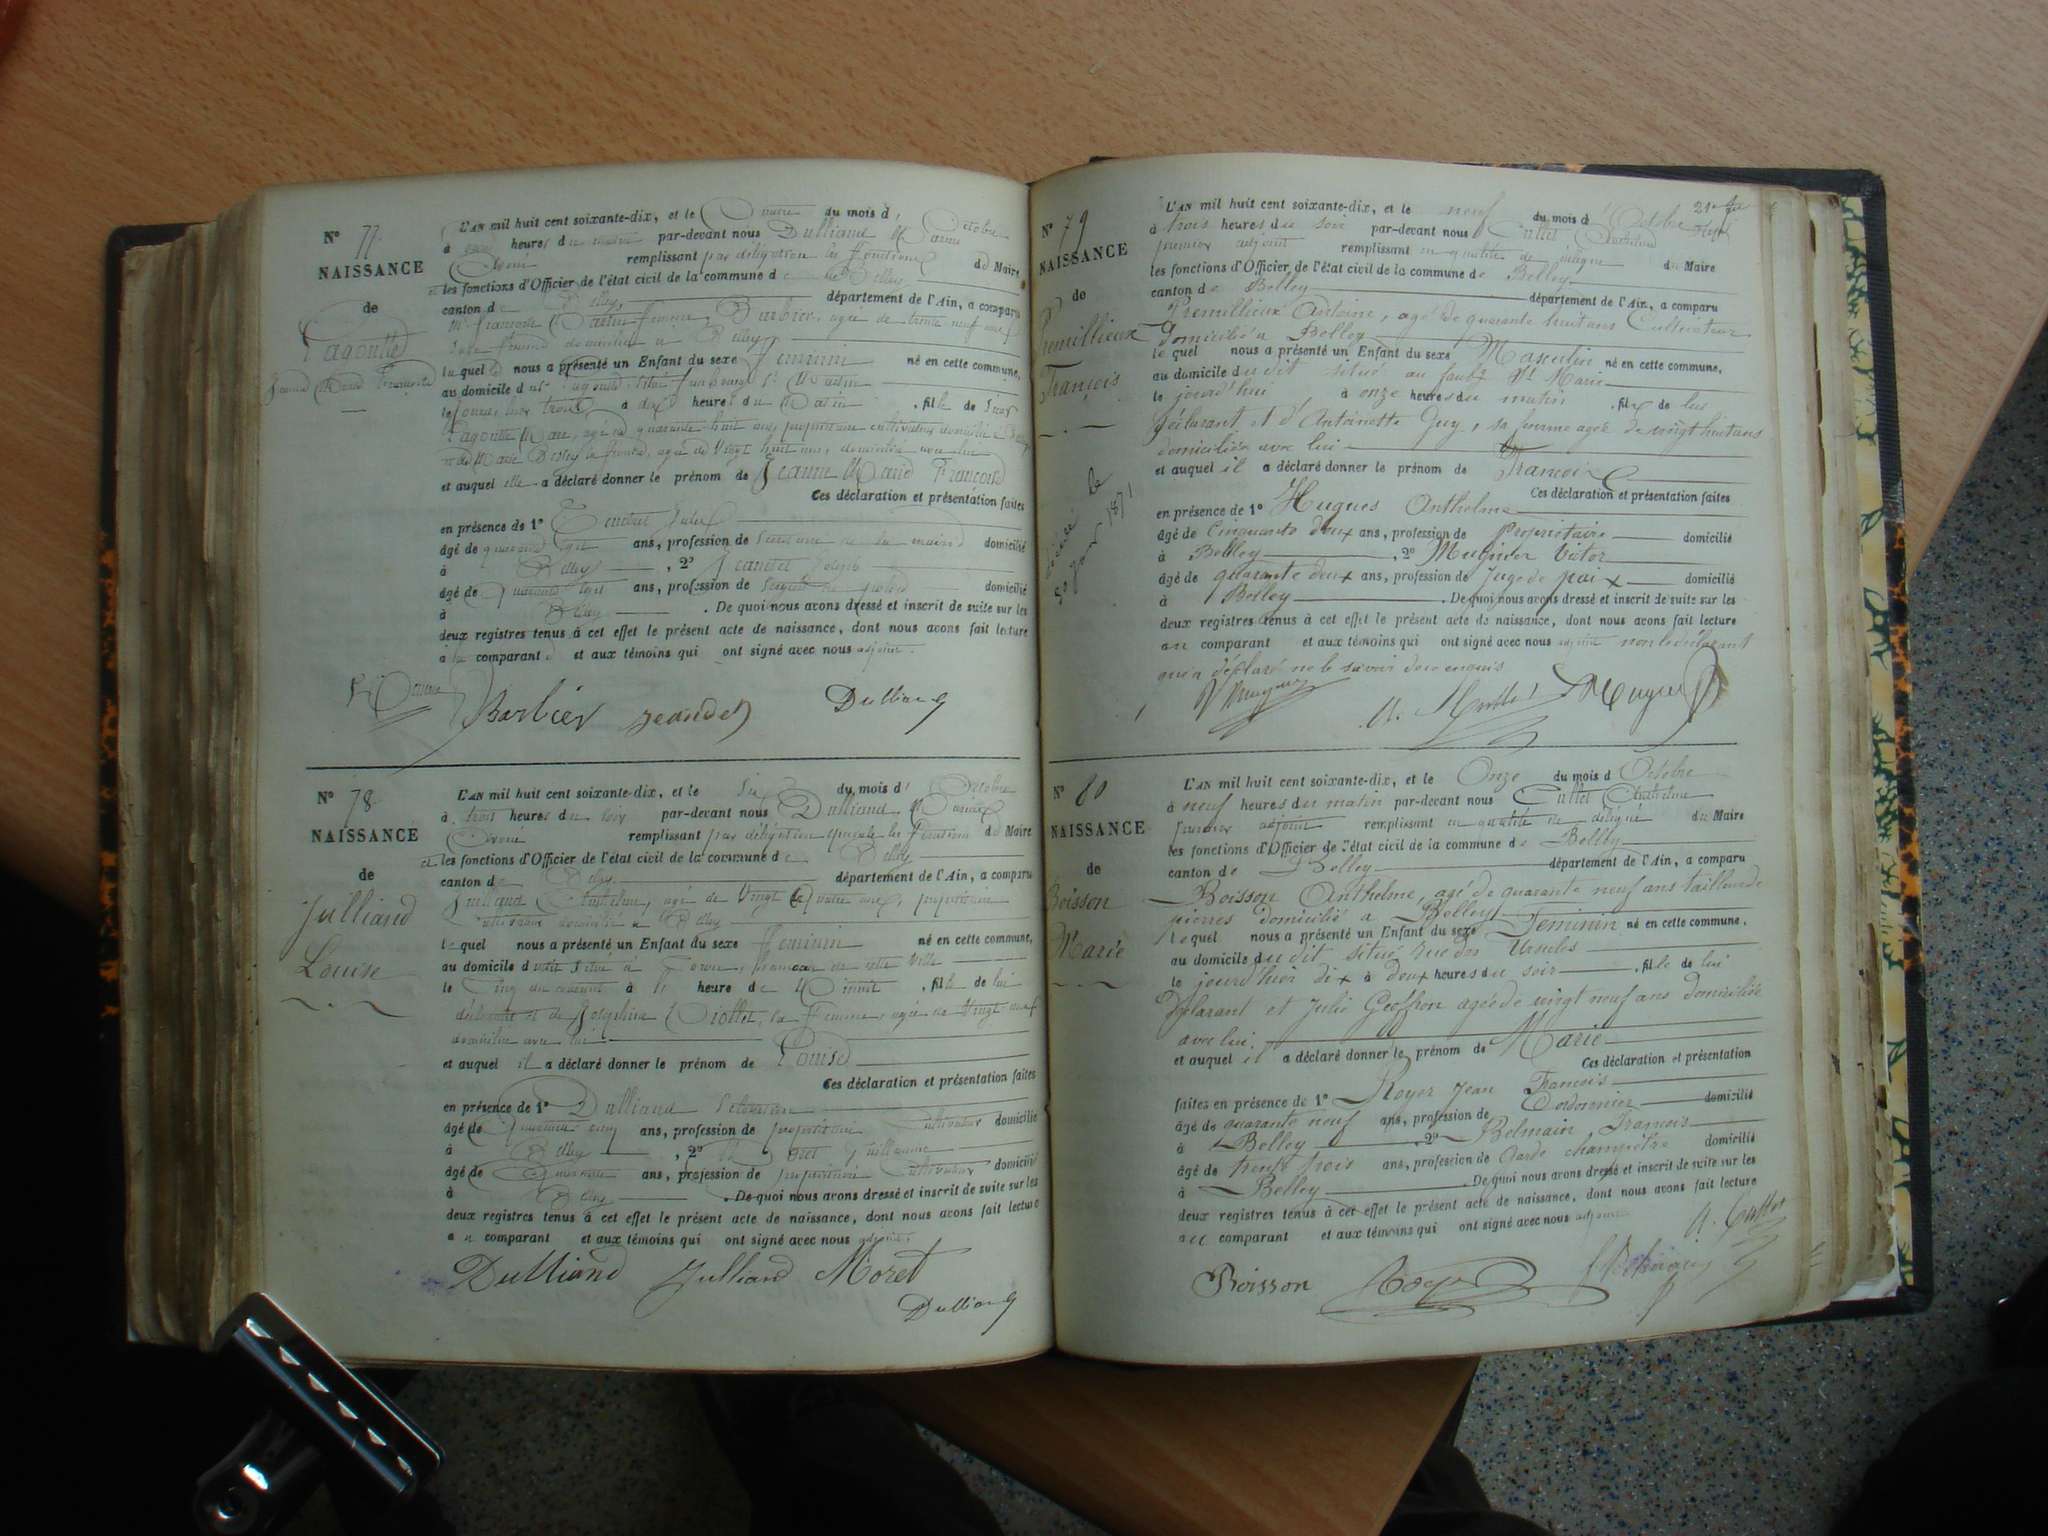 N° 77
NAISSANCE
de
Jeanne Marie Françoise
L'AN mil huit cent soixante-dix, et le du mois d' Octobre
à heures du matin par-devant nous Dulliand
remplissant par délégation les fonctions du Maire
et les fonctions d'Officier de l'état civil de la commune de Belley
canton de Belley département de l'Ain, a comparu
Me françoise femme Barbier, agée de trente neuf ans
Sage femme domiciliée à Belley
laquelle nous a présenté un Enfant du sexe Féminin né en cette commune,
au domicile du situé faubourg St Martin
le à heures du Matin , fille de
agé de quarante huit ans, propriétaire cultivateur domicilié à Belley
et de Marie sa femme, agée de Vingt huit ans, domiciliée avec lui
et auquel elle a déclaré donner le prénom de Jeanne Marie Françoise
Ces déclaration et présentation faites
en présence de 1°
âgé de quarante ans, profession de Secrétaire de la mairie domicilié
à Belley , 2° Jeandet
âgé de Quarante ans, profession de domicilié
à Belley . De quoi nous avons dressé et inscrit de suite sur les
deux registres tenus à cet effet le présent acte de naissance, dont nous avons fait lecture
à la comparante et aux témoins qui ont signé avec nous adjoint.
Barbier Jeandet Dulliand
N° 78
NAISSANCE
de
Julliand
Louise
L'AN mil huit cent soixante-dix, et le Six du mois d' Octobre
à trois heures du soir par-devant nous Dulliand
remplissant par délégation spéciale les fonctions du Maire
et les fonctions d'Officier de l'état civil de la commune de Belley
canton de Belley département de l'Ain, a comparu
Julliand Anthelme, agé de Vingt quatre ans, propriétaire
cultivateur domicilié à Belley
lequel nous a présenté un Enfant du sexe Féminin né en cette commune,
au domicile du dit situé à de cette Ville
le Cinq du courant à heure de Minuit , fille de lui
déclarant et de Joséphine sa femme, agée de Vingt neuf
domiciliée avec lui
et auquel il a déclaré donner le prénom de Louise
Ces déclaration et présentation faites
en présence de 1° Dulliand
âgé de Quarante cinq ans, profession de propriétaire cultivateur domicilié
à Belley , 2° Moret Guillaume
âgé de Quarante ans, profession de propriétaire Cultivateur domicilié
à Belley . De quoi nous avons dressé et inscrit de suite sur les
deux registres tenus à cet effet le présent acte de naissance, dont nous avons fait lecture
au comparant et aux témoins qui ont signé avec nous adjoint.
Dulliand Julliand Moret
Dulliand
N° 79
NAISSANCE
de
Premillieux
François
L'AN mil huit cent soixante-dix, et le neuf du mois d' Octobre
à trois heures du soir par-devant nous Cullet Anthelme
premier adjoint remplissant en qualité de délégué du Maire
les fonctions d'Officier de l'état civil de la commune de Belley
canton de Belley département de l'Ain, a comparu
Premillieux Antoine, agé de quarante huit ans Cultivateur
domicilié à Belley
lequel nous a présenté un Enfant du sexe Masculin né en cette commune,
au domicile du dit situé au faubg St Marie
le jourd'hui à onze heures du matin , fils de lui
déclarant et d'Antoinette Guy, sa femme agée de vingt huit ans
domiciliée avec lui
et auquel il a déclaré donner le prénom de François
Ces déclaration et présentation faites
en présence de 1° Hugues Anthelme
âgé de Cinquante deux ans, profession de Propriétaire domicilié
à Belley , 2° Mugnier Victor
âgé de quarante deux ans, profession de Juge de paix domicilié
à Belley . De quoi nous avons dressé et inscrit de suite sur les
deux registres tenus à cet effet le présent acte de naissance, dont nous avons fait lecture
au comparant et aux témoins qui ont signé avec nous adjoint non le déclarant
qui a déclaré ne le savoir de ce enquis
N° 80
NAISSANCE
de
Boisson
Marie
L'AN mil huit cent soixante-dix, et le Onze du mois d' Octobre
à neuf heures du matin par-devant nous Cullet Anthelme
premier adjoint remplissant en qualité de délégué du Maire
les fonctions d'Officier de l'état civil de la commune de Belley
canton de Belley département de l'Ain, a comparu
Boisson Anthelme, agé de quarante neuf ans tailleur de
pierres domicilié à Belley
lequel nous a présenté un Enfant du sexe Féminin né en cette commune.
au domicile du dit situé rue des Ursules
le jourd'hier dix à deux heures du soir , fille de lui
déclarant et Julie Geoffron agée de vingt neuf ans domiciliée
avec lui.
et auquel il a déclaré donner le prénom de Marie
Ces déclaration et présentation
faites en présence de 1° Royer Jean François
âgé de quarante neuf ans, profession de Cordonnier domicilié
à Belley , 2° Belmain François
âgé de trente trois ans, profession de Garde champêtre domicilié
à Belley . De quoi nous avons dressé et inscrit de suite sur les
deux registres tenus à cet effet le présent acte de naissance, dont nous avons fait lecture
au comparant et aux témoins qui ont signé avec nous adjoint
A. Cullet
Boisson Royer